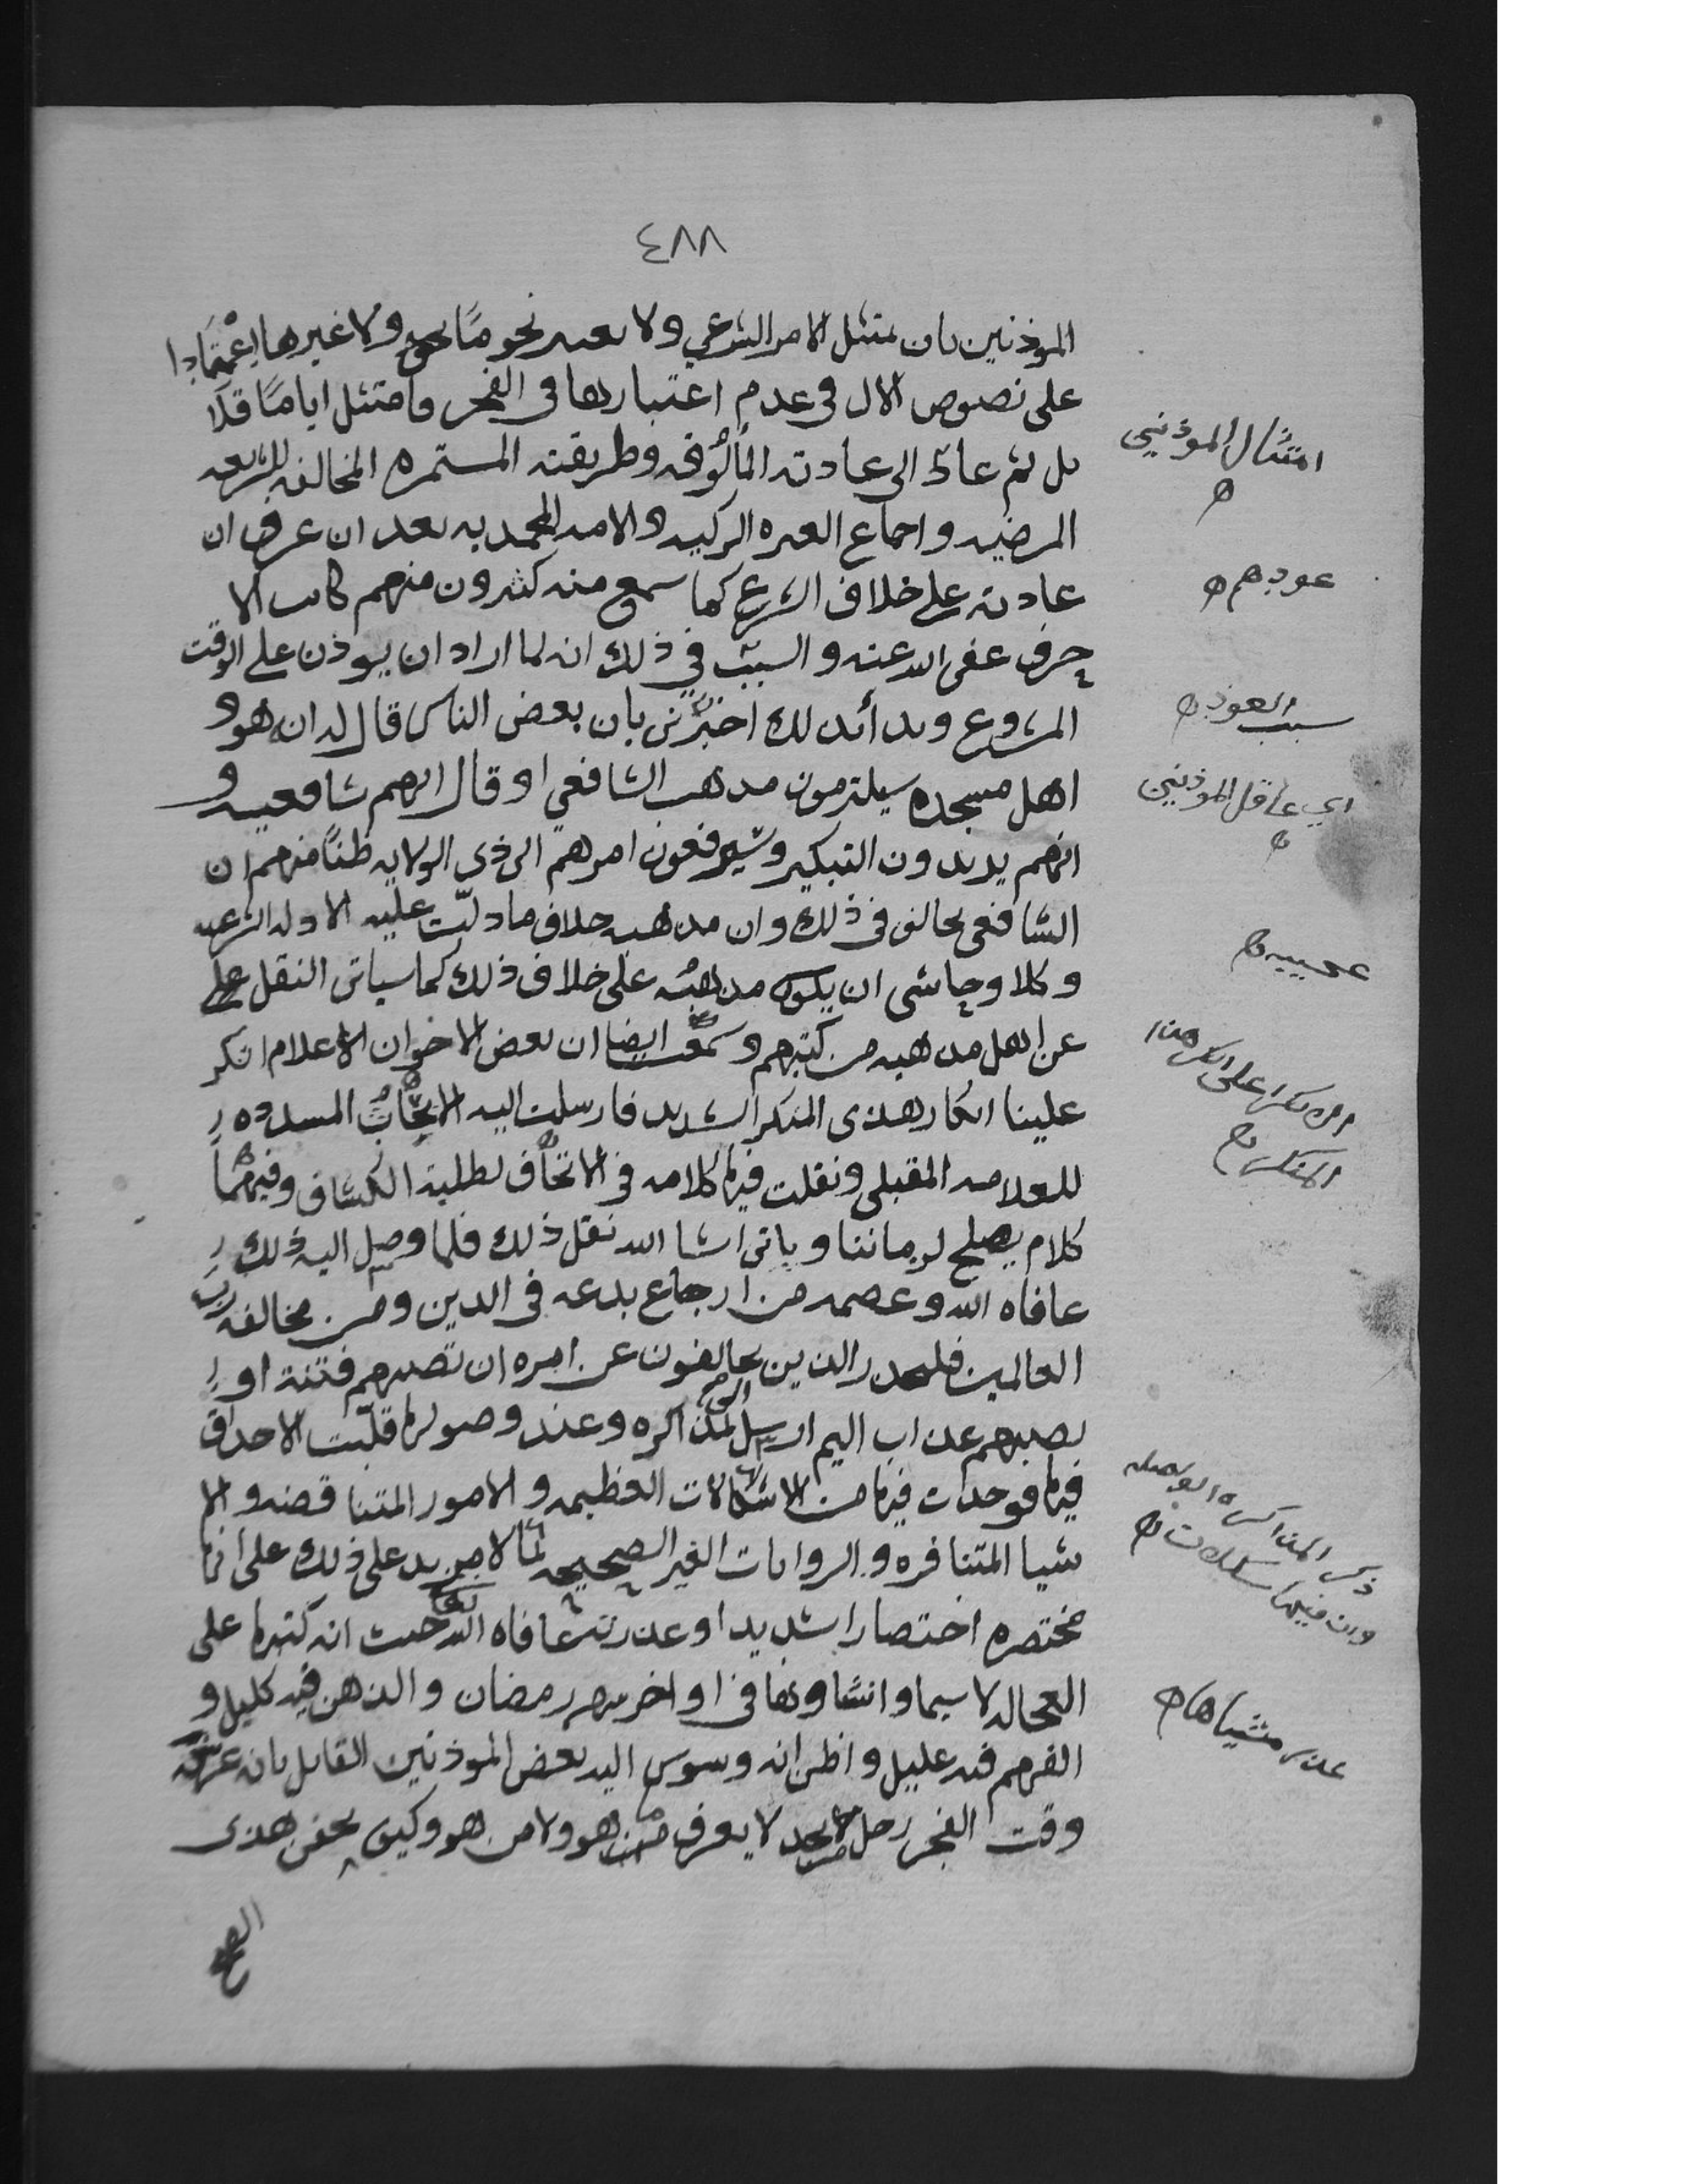 ٤٨٨
الموذنين بان يمتثل الامر الشرعي ولا يعتبر نحومًا ولا غيرها اعْتمَادا
على نصوص الال في عدم اعتبارها في الفجر وامتثل ايامًا قلا
يل ثم عاد الى عادته المألُوفه وطريقته المستمره المخالفه للشريعه
المرضيه واجماع العتره الزكيه والامه المحمديه بعد ان عرف ان
عادته على خلاف الشرع كما سمع منه كثيرون منهم كاتب الا
حرف عفى الله عنه والسبب في ذلك انه لما اراد ان يوذن على الوقت
المشروع وبدأ بذلك اخبرني بان بعض الناس قال له ان هو و
اهل مسجده سيلتزمون مذهب الشافعي او قال انهم شافعيه و
انهم يريدون التبكير وسيرفعون امرهم الى ذي الولايه ظنًا منهم ان
الشافعي يخالف في ذلك وان مذهبه خلاف ما دلّت عليه الادله الشرعيه
وكلا وحاشى ان يكون مذهبُه على خلاف ذلك كما سياتى النقل
عن اهل مذهبه من كتبهم وسمعت ايضا ان بعض الاخوان الاعلام انكر
علينا انكار هذى المنكر الشديد فارسلت اليه الابحاثُ المسدده
للعلامه المقبلي ونقلت فيها كلامه في الاتحاف لطلبة الكشاف وفيهما
كلام يصلح لزماننا وياتى انشا الله نقل ذلك فلما وصل اليه ذلك
عافاه الله وعصمه من ارجاع بدعه في الدين ومن مخالفه رب
العالمين فليحذر الذين يخالفون عن امره ان تصيبهم فتنة او
يصيبهم عذاب اليم ارسل الي المذاكره وعند وصولها قلّبت الاحداق
فيها فوجدت فيها من الاشكالات العظيمه والامور المتناقضه والا
شيا المتنافره والروايات الغير الصحيحه لما لا مزيد على ذلك على انها
مختصره اختصارا شديدا وعذرته عافاه الله تعا حيث انه كتبها على
العجاله لاسيما وانشاوها في اواخر شهر رمضان والذهن فيه كليل و
الفهم فيه عليل واظن انه وسوس اليه بعض الموذنين القايل بان
وقت الفجر رجل لا يعرف ما هو ولا من هو وكيف يخفى هذى
امتثال الموذنين
عودهم
سبب العود
اي عاقل الموذنين
عجيبه
الانكار على انكار هذا
المنكر
ذكر المذاكره الواصله
وان فيها مشكلات
عذر منشياها